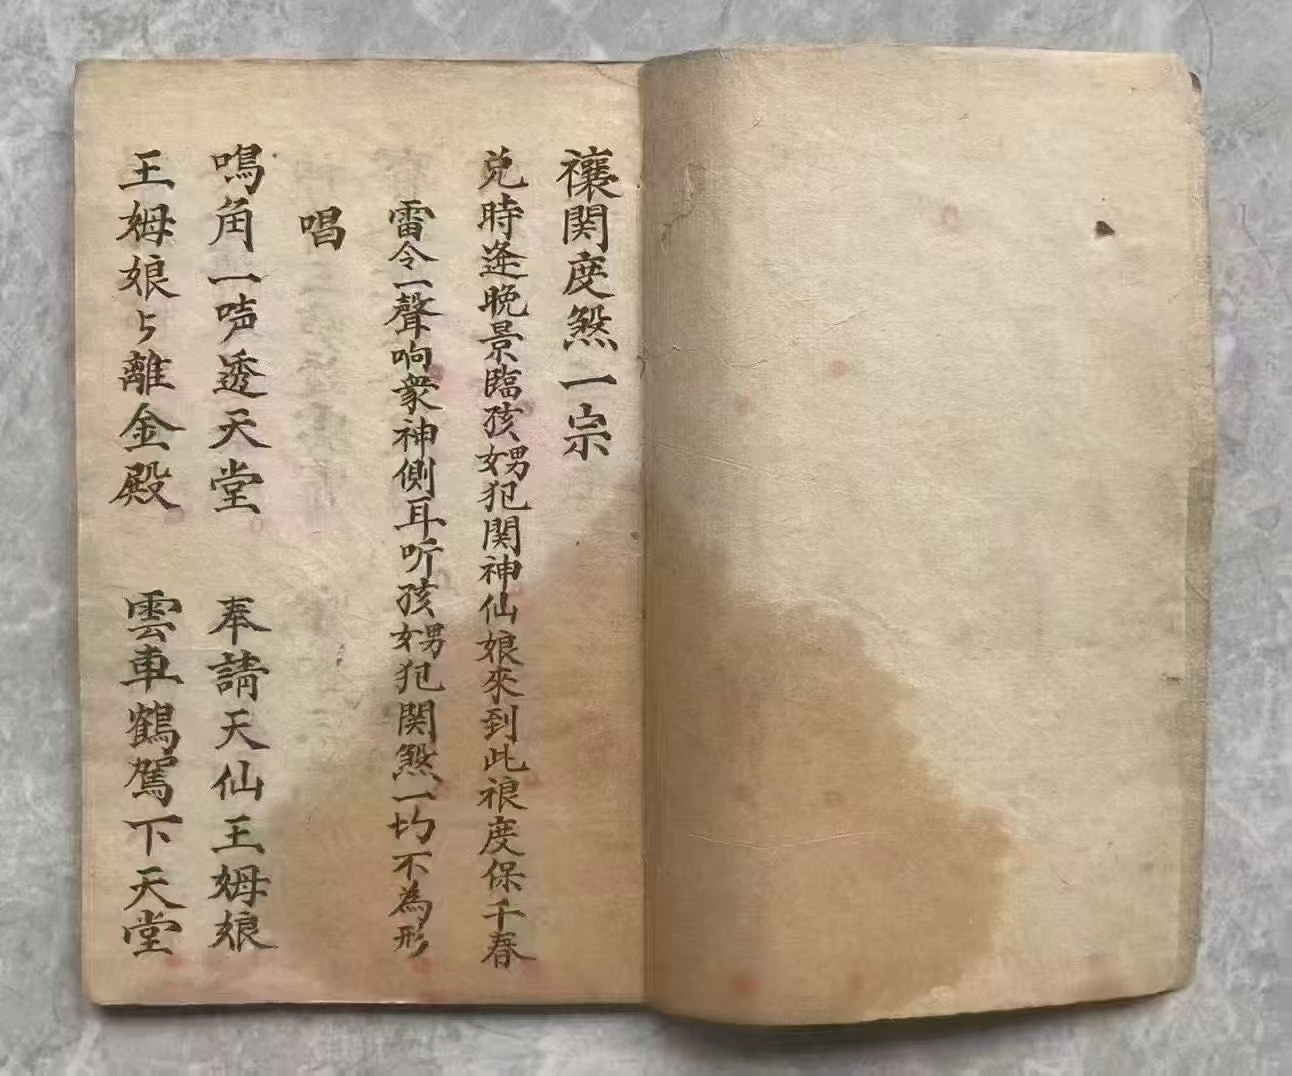 禳関度煞一宗
兑時逢晚景臨孩娚犯関神仙娘來到此禳度保千春
雷令一聲响衆神側耳听孩娚犯関煞一切不為形
唱
鳴角一声透天堂 奉請天仙王姆娘
王姆娘ㄣ離金殿 雲車鶴駕下天堂